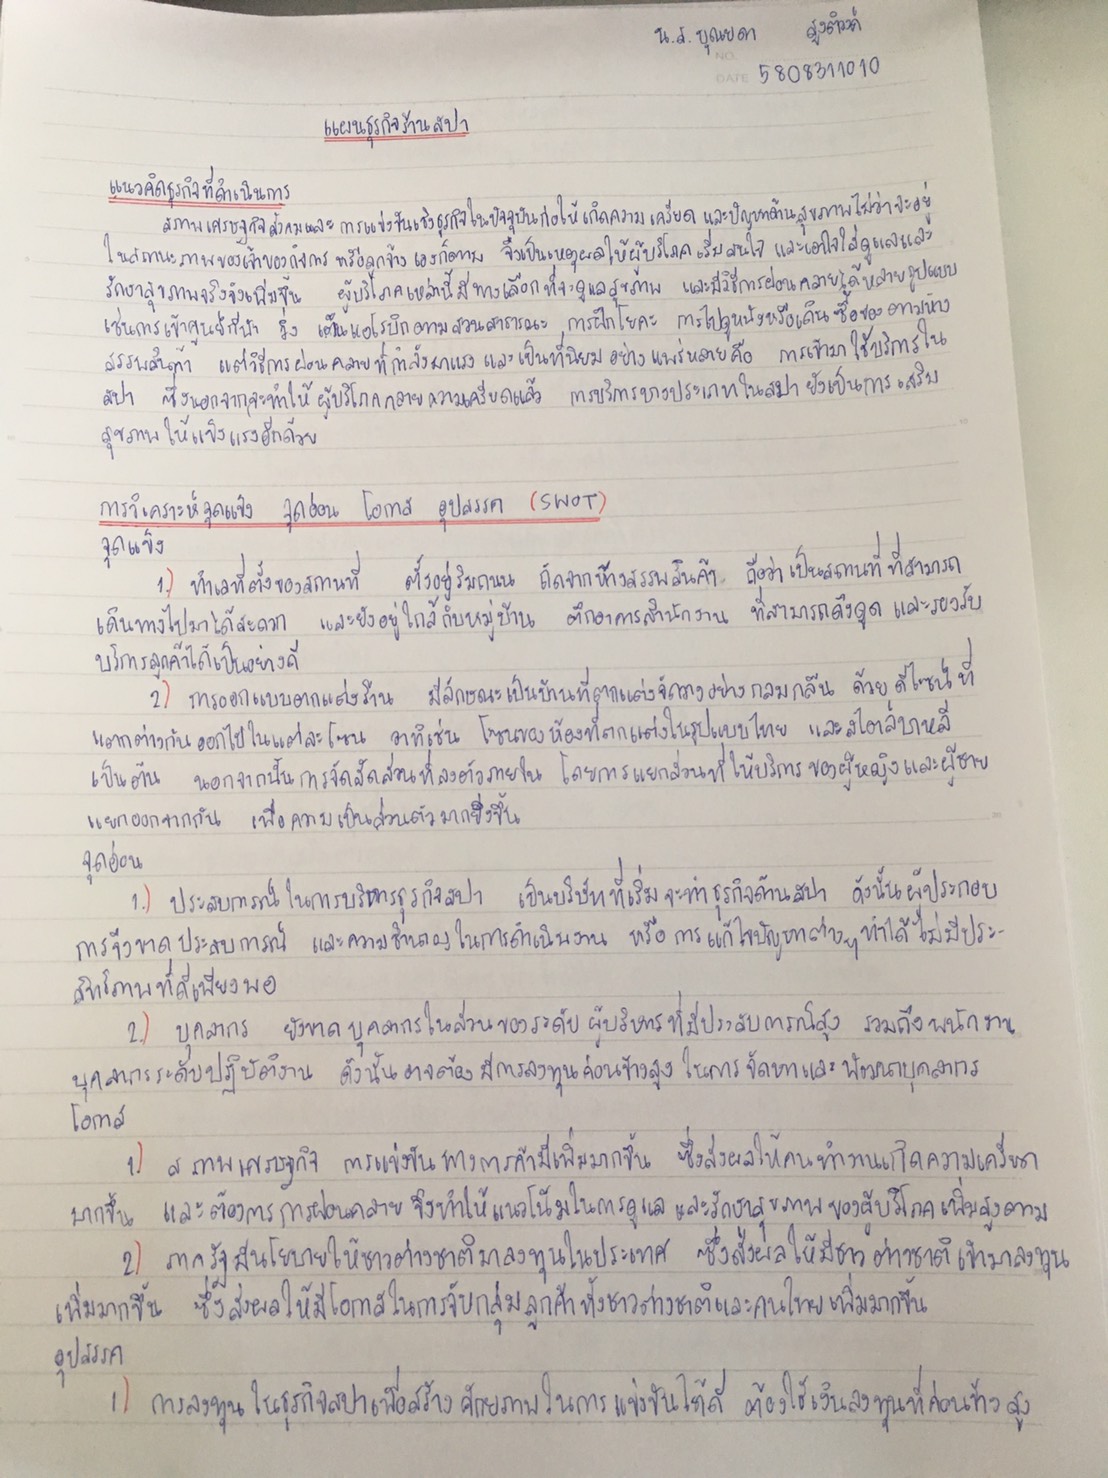 น.ส. บุณยดา
NO.
DATE 5808311010
แผนธุรกิจร้านสปา
แนวคิดธุรกิจที่ดำเนินการ
สภาพเศรษฐกิจสังคมและการแข่งขันเชิงธุรกิจในปัจจุบันก่อให้เกิดความเครียด และปัญหาด้านสุขภาพไม่ว่าจะอยู่
ในสถานะภาพของเจ้าของกิจการ หรือลูกจ้างเองก็ตาม จึงเป็นเหตุผลให้ผู้บริโภคเริ่มสนใจ และเอาใจใส่ดูแลและ
รักษาสุขภาพจริงจังเพิ่มขึ้น ผู้บริโภคเหล่านี้มีทางเลือกที่จะดูแลสุขภาพ และมีวิธีการผ่อนคลายได้หลายรูปแบบ
เช่นการเข้าศูนย์กีฬา วิ่ง เต้นแอโรบิกตามสวนสาธารณะ การฝึกโยคะ การไปดูหนังหรือเดินซื้อของตามห้าง
สรรพสินค้า แต่วิธีการผ่อนคลายที่กำลังมาแรงและเป็นที่นิยมอย่างแพร่หลายคือ การเข้ามาใช้บริการใน
สปา ซึ่งนอกจากจะทำให้ผู้บริโภคคลายความเครียดแล้ว การบริการบางประเภทในสปายังเป็นการเสริม
สุขภาพให้แข็งแรงอีกด้วย
การวิเคราะห์จุดแข็ง จุดอ่อน โอกาส อุปสรรค (SWOT)
จุดแข็ง
1.) ทำเลที่ตั้งของสถานที่ ตั้งอยู่ริมถนน ถัดจากห้างสรรพสินค้า ถือว่าเป็นสถานที่ที่สามารถ
เดินทางไปมาได้สะดวก และยังอยู่ใกล้กับหมู่บ้าน ตึกอาคารสำนักงาน ที่สามารถดึงดูด และรองรับ
บริการลูกค้าได้เป็นอย่างดี
2) การออกแบบตกแต่งร้าน มีลักษณะเป็นบ้านที่ตกแต่งจัดวางอย่างกลมกลืน ด้วยดีไซน์ที่
แตกต่างกันออกไปในแต่ละโซน อาทิเช่น โซนของห้องที่ตกแต่งในรูปแบบไทย และสไตล์บาหลี
เป็นต้น นอกจากนั้นการจัดสัดส่วนที่ลงตัวภายใน โดยการแยกส่วนที่ให้บริการของผู้หญิงและผู้ชาย
แยกออกจากกัน เพื่อความเป็นส่วนตัวมากยิ่งขึ้น
จุดอ่อน
1.) ประสบการณ์ในการบริหารธุรกิจสปา เป็นบริษัทที่เริ่มจะทำธุรกิจด้านสปา ดังนั้นผู้ประกอบ
การจึงขาดประสบการณ์ และความชำนาญในการดำเนินงาน หรือการแก้ไขปัญหาต่างๆ ทำได้ไม่มีประ-
สิทธิภาพที่ดีเพียงพอ
2.) บุคลากร ยังขาดบุคลากรในส่วนของระดับผู้บริหารที่มีประสบการณ์สูง รวมถึงพนักงาน
บุคลากรระดับปฏิบัติงาน ดังนั้นอาจต้องมีการลงทุนค่อนข้างสูงในการจัดหาและพัฒนาบุคลากร
โอกาส
1) สภาพเศรษฐกิจ การแข่งขันทางการค้ามีเพิ่มมากขึ้น ซึ่งส่งผลให้คนทำงานเกิดความเครียด
มากขึ้น และต้องการการผ่อนคลาย จึงทำให้แนวโน้มในการดูแล และรักษาสุขภาพของผู้บริโภคเพิ่มสูงตาม
2) ภาครัฐมีนโยบายให้ชาวต่างชาติมาลงทุนในประเทศ ซึ่งส่งผลให้มีชาวต่างชาติเข้ามาลงทุน
เพิ่มมากขึ้น ซึ่งส่งผลให้มีโอกาสในการจับกลุ่มลูกค้าทั้งชาวต่างชาติและคนไทยเพิ่มมากขึ้น
อุปสรรค
1) การลงทุนในธุรกิจสปาเพื่อสร้างศักยภาพในการแข่งขันได้ดี ต้องใช้เงินลงทุนที่ค่อนข้างสูง